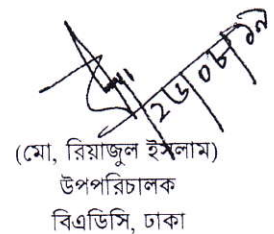 ২৬/০৮/১৯
(মো, রিয়াজুল ইসলাম)
উপপরিচালক
বিএডিসি, ঢাকা